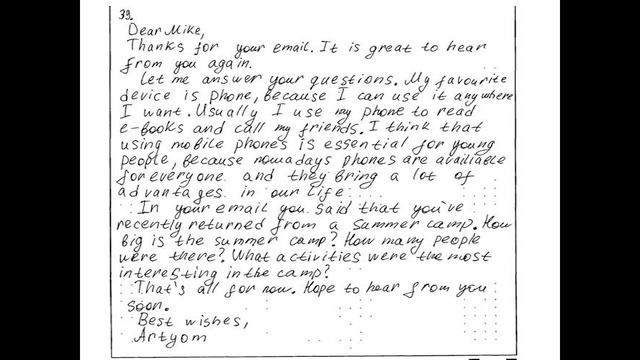 39.
Dear Mike,
Thanks for your email. It is great to hear
from you again.
Let me answer your questions. My favourite
device is phone, because I can use it anywhere
I want. Usually I use my phone to read
e-books and call my friends. I think that
using mobile phones is essential for young
people, because nowadays phones are available
for everyone and they bring a lot of
advantages in our life
In your email you said that you've
recently returned from a summer camp. How
big is the summer camp? How many people
were there? What activities were the most
interesting in the camp?
That's all for now. Hope to hear from you
soon.
Best wishes,
Artyom